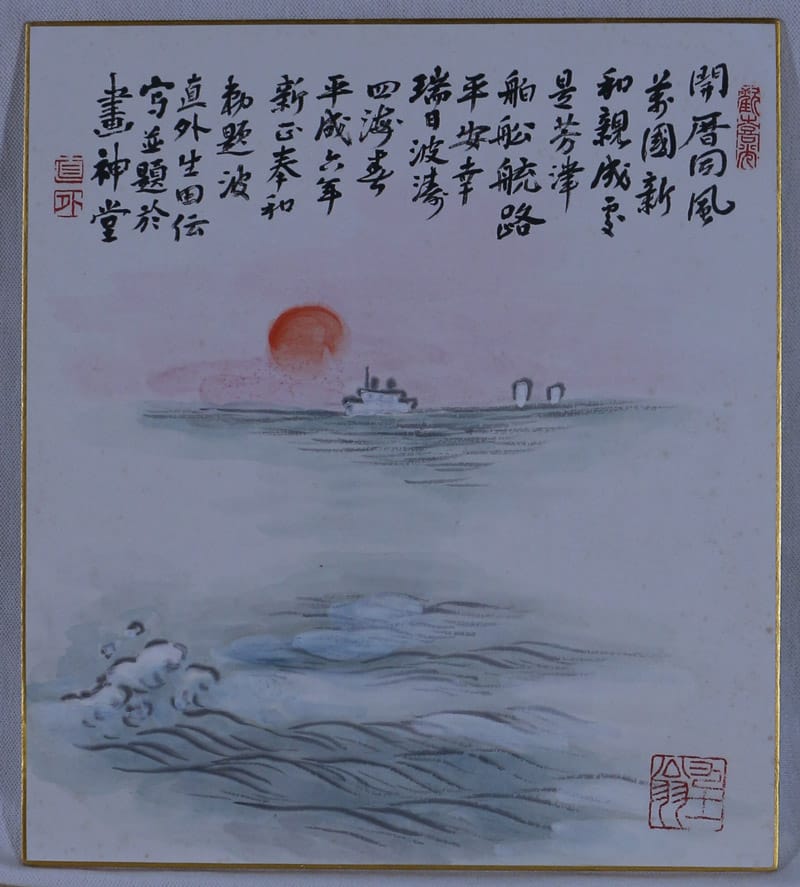 開暦回風
萬國新
和親成處
是芳津
舶舩航路
平安幸
瑞日波濤
四海春
平成六年
新正奉和
勅題波
直外生田伝
写並題於
畫神堂
直外